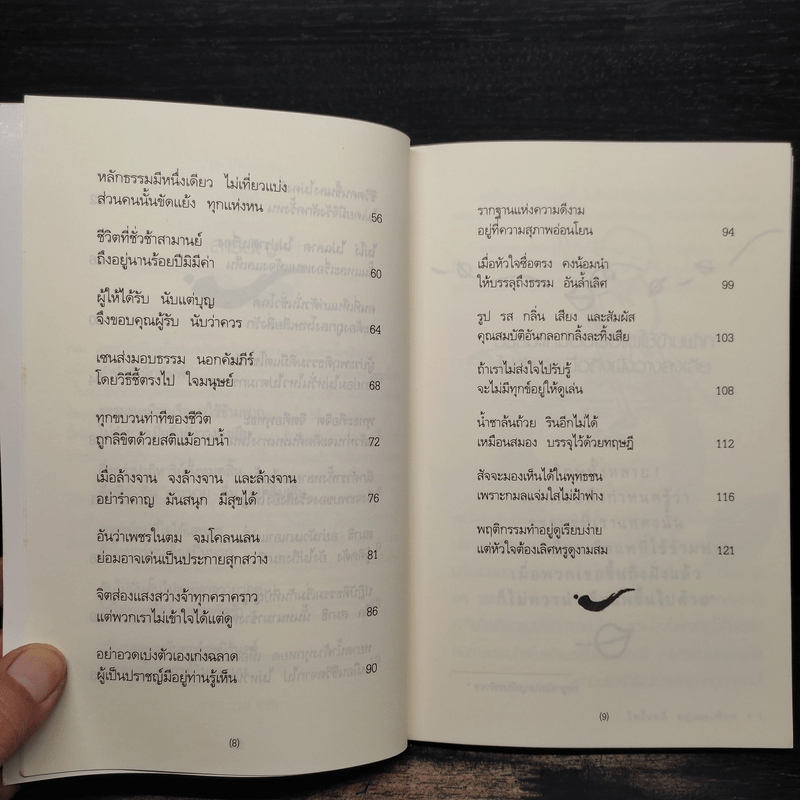 หลักธรรมมีหนึ่งเดียว ไม่เที่ยวแบ่ง
ส่วนคนนั้นขัดแย้ง ทุกแห่งหน 56
ชีวิตที่ชั่วช้าสามานย์
ถึงอยู่นานร้อยปีมิมีค่า 60
ผู้ให้ได้รับ นับแต่บุญ
จึงขอบคุณผู้รับ นับว่าควร 64
เซนส่งมอบธรรม นอกคัมภีร์
โดยวิธีชี้ตรงไป ใจมนุษย์ 68
ทุกขบวนท่าทีของชีวิต
ถูกลิขิตด้วยสติแม้อาบน้ำ 72
เมื่อล้างจาน จงล้างจาน และล้างจาน
อย่ารำคาญ มันสนุก มีสุขได้ 76
อันว่าเพชรในตม จมโคลนเลน
ย่อมอาจเด่นเป็นประกายสุกสว่าง 81
จิตส่องแสงสว่างจ้าทุกคราคราว
แต่พวกเราไม่เข้าใจได้แต่ดู 86
อย่าอวดเบ่งตัวเองเก่งฉลาด
ผู้เป็นปราชญ์มีอยู่ท่านรู้เห็น 90
(8)
รากฐานแห่งความดีงาม
อยู่ที่ความสุภาพอ่อนโยน 94
เมื่อหัวใจซื่อตรง คงน้อมนำ
ให้บรรลุถึงธรรม อันล้ำเลิศ 99
รูป รส กลิ่น เสียง และสัมผัส
คุณสมบัติอันกลอกกลิ้งละทิ้งเสีย 103
ถ้าเราไม่ส่งใจไปรับรู้
จะไม่มีทุกข์อยู่ให้ดูเล่น 108
น้ำชาล้นถ้วย รินอีกไม่ได้
เหมือนสมอง บรรจุไว้ด้วยทฤษฎี 112
สัจจะมองเห็นได้ในพุทธชน
เพราะกมลแจ่มใสไม่ฝ้าฟาง 116
พฤติกรรมทำอยู่ดูเรียบง่าย
แต่หัวใจต้องเลิศหรูดูงามสม 121
(9)